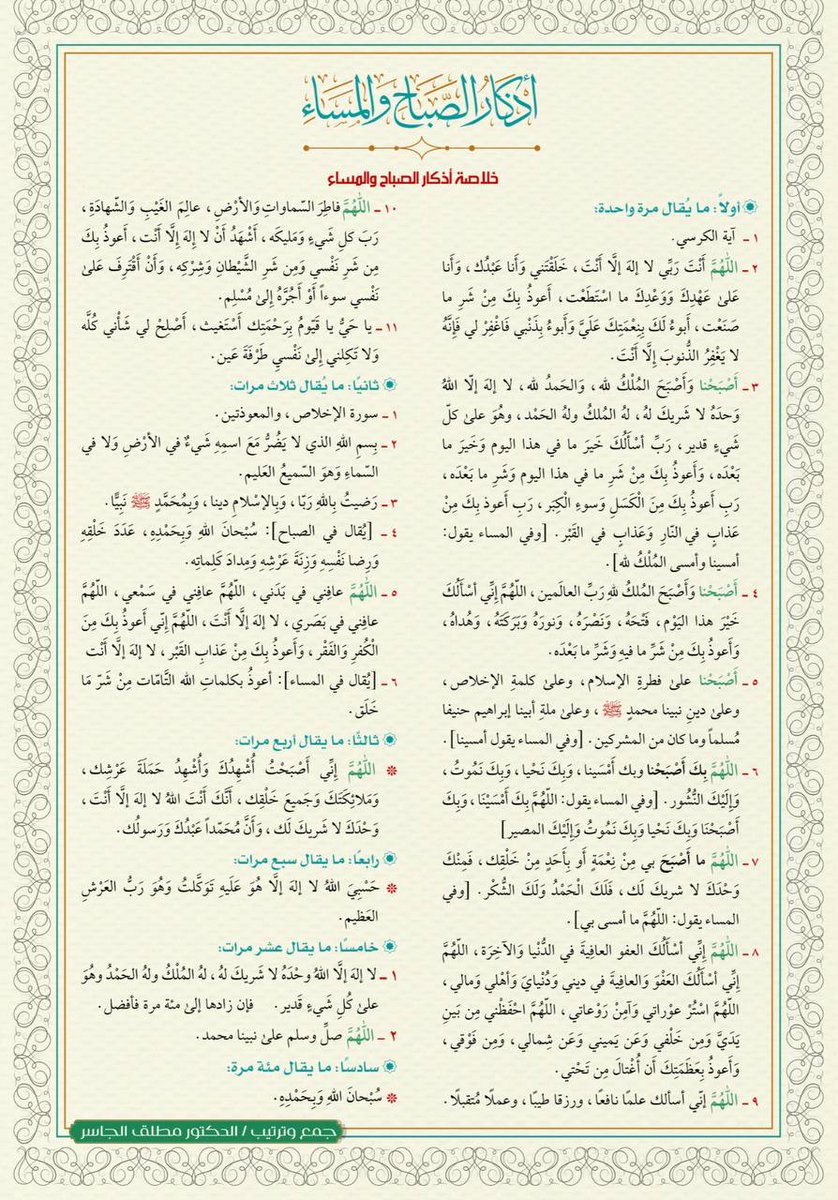 أذكار الصَّبَاحِ وَالمَسَاءِ
خلاصة أذكار الصباح والمساء
أولاً: ما يُقال مرة واحدة:
١ ـ آية الكرسي.
٢ ـ اللَّهُمَّ أَنْتَ رَبِّي لا إلهَ إلَّا أَنْتَ، خَلَقْتَني وَأنا عَبْدُك، وَأنا
عَلىٰ عَهْدِكَ وَوَعْدِكَ ما اسْتَطَعْت، أعوذُ بِكَ مِنْ شَرِ ما
صَنَعْت، أبوءُ لَكَ بِنِعْمَتِكَ عَلَيَّ وَأبوءُ بِذَنْبي فَاغْفِرْ لي فَإنَّهُ
لا يَغْفِرُ الذُّنوبَ إلَّا أَنْتَ.
٣ ـ أَصْبَحْنا وَأَصْبَحَ المُلْكُ لله، وَالحَمدُ لله، لا إلهَ إلّا اللهُ
وَحدَهُ لا شريكَ لهُ، لهُ المُلكُ ولهُ الحَمْد، وهُوَ علىٰ كلّ
شَيءٍ قدير، رَبِّ أسْأَلُكَ خَيرَ ما في هذا اليوم وَخَيرَ ما
بَعْدَه، وَأَعوذُ بِكَ مِنْ شَرِ ما في هذا اليوم وَشَرِ ما بَعْدَه،
رَبِ أَعوذُ بكَ مِنَ الْكَسَلِ وَسوءِ الْكِبَر، رَبِ أَعوذ بِكَ مِنْ
عَذابٍ في النّارِ وَعَذابٍ في القَبْر. [وفي المساء يقول:
أمسينا وأمسى المُلْكُ لله].
٤ ـ أَصْبَحْنا وَأَصْبَحَ المُلكُ للهِ رَبِّ العالَمين، اللّهُمَّ إنِّي أسْأَلُكَ
خَيْرَ هذا اليَوْم، فَتْحَهُ، وَنَصْرَهُ، وَنورَهُ وَبَرَكَتَهُ، وَهُداهُ،
وَأَعوذُ بِكَ مِنْ شَرِّ ما فيهِ وَشَرِّ ما بَعْدَه.
٥ ـ أَصْبَحْنا علىٰ فطرةِ الإسلام، وعلىٰ كلمةِ الإخلاص،
وعلىٰ دينِ نبينا محمدٍ ﷺ، وعلىٰ ملةِ أبينا إبراهيم حنيفا
مُسلماً وما كان من المشركين. [وفي المساء يقول أمسينا].
٦ ـ اللَّهُمَّ بِكَ أَصْبَحْنا وبك أَمْسَينا، وَبِكَ نَحْيا، وَبِكَ نَموتُ،
وَإِلَيْكَ النُّشُور. [وفي المساء يقول: اللّهُمَّ بِكَ أَمْسَيْنَا، وَبِكَ
أَصْبَحْنَا وَبِكَ نَحْيا وَبِكَ نَمُوتُ وَإِلَيْكَ المصير]
٧ ـ اللَّهُمَّ ما أَصْبَحَ بي مِنْ نِعْمَةٍ أَو بِأَحَدٍ مِنْ خَلْقِك، فَمِنْكَ
وَحْدَكَ لا شريكَ لك، فَلَكَ الْحَمْدُ وَلَكَ الشُّكْر. [وفي
المساء يقول: اللّهُمَّ ما أمسى بي].
٨ ـ اللَّهُمَّ إنِّي أسأَلُكَ العفو العافِيةَ في الدُّنْيا وَالآخِرَة، اللّهُمَّ
إنِّي أسأَلُكَ العَفْوَ وَالعافِيةَ في ديني وَدُنْيايَ وَأهْلي وَمالي،
اللّهُمَّ اسْتُرْ عوْراتي وَآمِنْ رَوْعاتي، اللّهُمَّ احْفَظْني مِن بَينِ
يَدَيَّ وَمِن خَلْفي وَعَن يَميني وَعَن شِمالي، وَمِن فَوْقي،
وَأَعوذُ بِعَظَمَتِكَ أَن أُغْتالَ مِن تَحْتي.
٩ ـ اللَّهُمَّ إنّي أسألك علمًا نافعًا، ورزقا طيبًا، وعملًا مُتقبلًا.
١٠ ـ اللَّهُمَّ فاطِرَ السّماواتِ وَالأرْضِ، عالِمَ الغَيْبِ وَالشّهادَةِ،
رَبَ كلِ شَيءٍ وَمَليكَه، أَشْهَدُ أَنْ لا إلهَ إلَّا أَنْت، أَعوذُ بِكَ
مِن شَرِ نَفْسي وَمِن شَرِ الشَّيْطانِ وَشِرْكِه، وَأَنْ أَقْتَرِفَ عَلىٰ
نَفْسي سوءاً أَوْ أَجُرَّهُ إلىٰ مُسْلِم.
١١ ـ يا حَيُّ يا قَيّومُ بِرَحْمَتِك أَسْتَغيث، أَصْلِحْ لي شَأْني كُلَّه
وَلا تَكِلني إلىٰ نَفْسي طَرْفَةَ عَين.
ثانيًا: ما يُقال ثلاث مرات:
١ ـ سورة الإخلاص، والمعوذتين.
٢ ـ بِسمِ اللهِ الذي لا يَضُرُّ مَعَ اسمِهِ شَيءٌ في الأرْضِ وَلا في
السّماءِ وَهوَ السّميعُ العَليم.
٣ ـ رَضيتُ بِاللهِ رَبّا، وَبِالإسْلامِ دينا، وَبِمُحَمَّدٍ ﷺ نَبيًّا.
٤ ـ [يُقال في الصباح]: سُبْحانَ اللهِ وَبِحَمْدِهِ، عَدَدَ خَلْقِهِ
وَرِضا نَفْسِهِ وَزِنَةَ عَرْشِهِ وَمِدادَ كَلِماتِه.
٥ ـ اللَّهُمَّ عافِني في بَدَني، اللّهُمَّ عافِني في سَمْعي، اللّهُمَّ
عافِني في بَصَري، لا إلهَ إلَّا أَنْتَ، اللّهُمَّ إنّي أَعوذُ بِكَ مِنَ
الْكُفرِ وَالفَقْر، وَأَعوذُ بِكَ مِنْ عَذابِ القَبْر، لا إلهَ إلَّا أَنْت
٦ ـ [يُقال في المساء]: أعوذُ بكلماتِ الله التَّامّات مِنْ شَرّ مَا
خَلَق.
ثالثًا: ما يقال أربع مرات:
اللَّهُمَّ إِنِّي أَصْبَحْتُ أُشْهِدُكَ وَأُشْهِدُ حَمَلَةَ عَرْشِك،
وَمَلائِكَتَكَ وَجَميعَ خَلْقِك، أَنَّكَ أَنْتَ اللهُ لا إلهَ إلَّا أَنْتَ،
وَحْدَكَ لا شَريكَ لَك، وَأَنَّ مُحَمّداً عَبْدُكَ وَرَسولُك.
رابعًا: ما يقال سبع مرات:
حَسْبِيَ اللهُ لا إلهَ إلَّا هُوَ عَلَيهِ تَوَكَّلتُ وَهُوَ رَبُّ العَرْشِ
العَظيم.
خامسًا: ما يقال عشر مرات:
١ ـ لا إلهَ إلَّا اللهُ وحْدَهُ لا شَريكَ لهُ، لهُ المُلْكُ ولهُ الحَمْدُ وهُوَ
علىٰ كُلِ شَيءٍ قَدير. فإن زادها إلىٰ مئة مرة فأفضل.
٢ ـ اللَّهُمَّ صلِّ وسلم علىٰ نبينا محمد.
سادسًا: ما يقال مئة مرة:
سُبْحانَ اللهِ وَبِحَمْدِهِ.
جمع وترتيب / الدكتور مطلق الجاسر